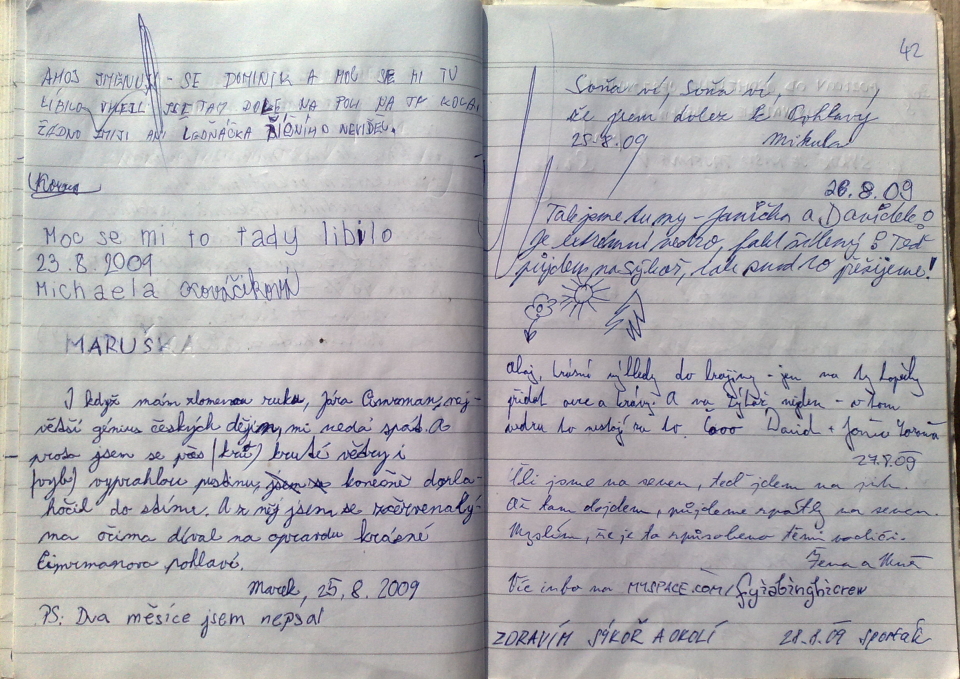 AHOJ JMENUJI SE DOMINIK A MOC SE MI TU
LÍBILO DOLE NA POLI NA
ŽÁDNO ZMIJI ANI ŘÍČNÍHO NEVIDĚL.
Moc se mi to tady libilo
23.8.2009
Michaela Kováčiková
MARUŠKA
I když mám zlomenou ruku, Jára Cimrman, nej-
větší génius českých dějin, mi nedá spát. A
proto jsem se přes (kře) kruté větry i
vyprahlou pustinu konečně dopla-
hočil do stínu. A z něj jsem se zčervenalý-
ma očima díval na opravdu krásné
Cimrmanova pohlaví.
Marek, 25.8.2009
PS: Dva měsíce jsem nepsal
42
Soňa ví, Soňa ví,
že jsem dolez k Pohlavy
25.8.09 Mikula
26.8.09
Tak jsme tu my - Janička a Davídek
Je extrémní vedro, fakt šílený Teď
půjdem na Sýkoř, tak snad to přežijeme!
Ahoj, krásné výhledy do krajiny - jen na ty kopečky
přidat ovce a krávy A na Žítář nejdem - v tom
vedru to nestojí za to. Čooo David + Janča
27.8.09
Šli jsme na sever, teď jdem na jih.
Až tam dojdem, půjdeme zpátky na sever.
Myslím, že je to způsobeno těmi vodiči.
Žena a Muž
Víc info na MYSPACE.COM/fyiabinghicrew
ZDRAVÍM SÝKOŘ A OKOLÍ 28.8.09 Sporťák